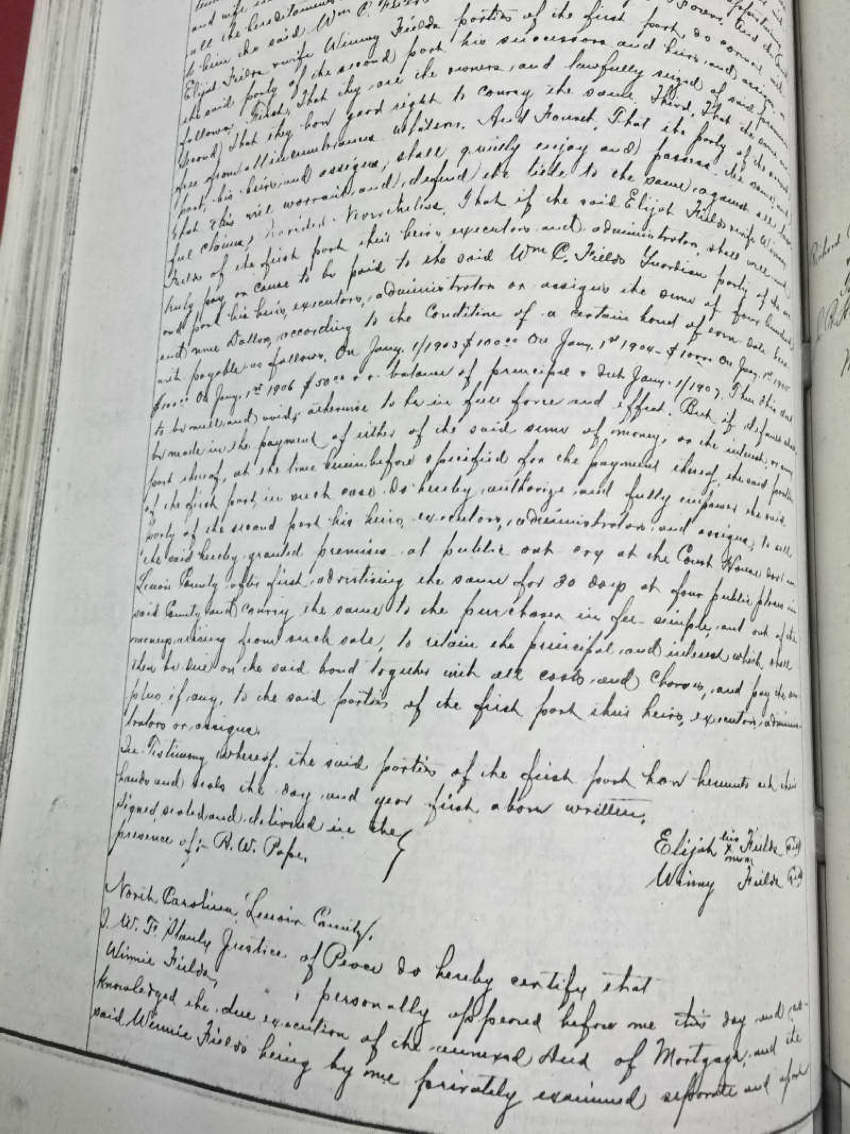 and wife
all the hereditaments
to him the said Wm C. Fields
Elijah Fields & wife Winny Fields parties of the first part, do covenant with
the said party of the second part his successors and heirs and assigns, as
follows: First, That they are the owners, and lawfully seized of said premises
Second, That they have good right to convey the same. Third, That the same are
free from all incumbrances whatsoever. And Fourth, That the party of the second
part, his heirs and assigns, shall quietly enjoy and possess the same, and
that they will warrant and defend the title to the same against all law-
ful claims; Provided Nevertheless, That if the said Elijah Fields & wife Winny
Fields of the first part their heirs executors and administrators, shall well and
truly pay or cause to be paid to the said Wm C. Fields Guardian party of the sec-
ond part his heirs, executors, administrators or assigns the sum of four hundred
and nine Dollars, according to the Condition of a certain bond of even date here
with payable as follows. On Jany. 1/1903 $100.00 On Jany. 1st 1904 $100.00 On Jany. 1st 1905
$100.00 On Jany. 1st 1906 $50.00 balance of principal & debt Jany. 1/1907. Then this deed
to be null and void; otherwise to be in full force and effect. But if default shall
be made in the payment of either of the said sums of money, or the interest, or any
part thereof, at the time hereinbefore specified for the payment thereof, the said parties
of the first part, in such case do hereby authorize and fully empower the said
party of the second part his heirs, executors, administrators and assigns; to sell
the said hereby granted premises at public out cry at the Court House door in
Lenoir County after first advertising the same for 30 days at four public places in
said County and convey the same to the purchaser in fee-simple, and out of the
moneys arising from such sale, to retain the principal and interest which shall
then be due on the said bond together with all costs and charges, and pay the sur
plus if any, to the said parties of the first part their heirs, executors, adminis-
trators or assigns.
In Testimony Whereof, the said parties of the first part have hereunto set their
hands and seals the day and year first above written.
Signed, sealed and delivered in the
presence of:- R. W. Pope.
Elijah his x mark Fields (seal)
Winny Fields (seal)
North Carolina, Lenoir County.
I, W. F. Stanly Justice of Peace do hereby certify that
Winnie Fields, personally appeared before me this day and ac-
knowledged the due execution of the annexed Deed of Mortgage, and the
said Winnie Fields being by me privately examined separate and apart
Richard